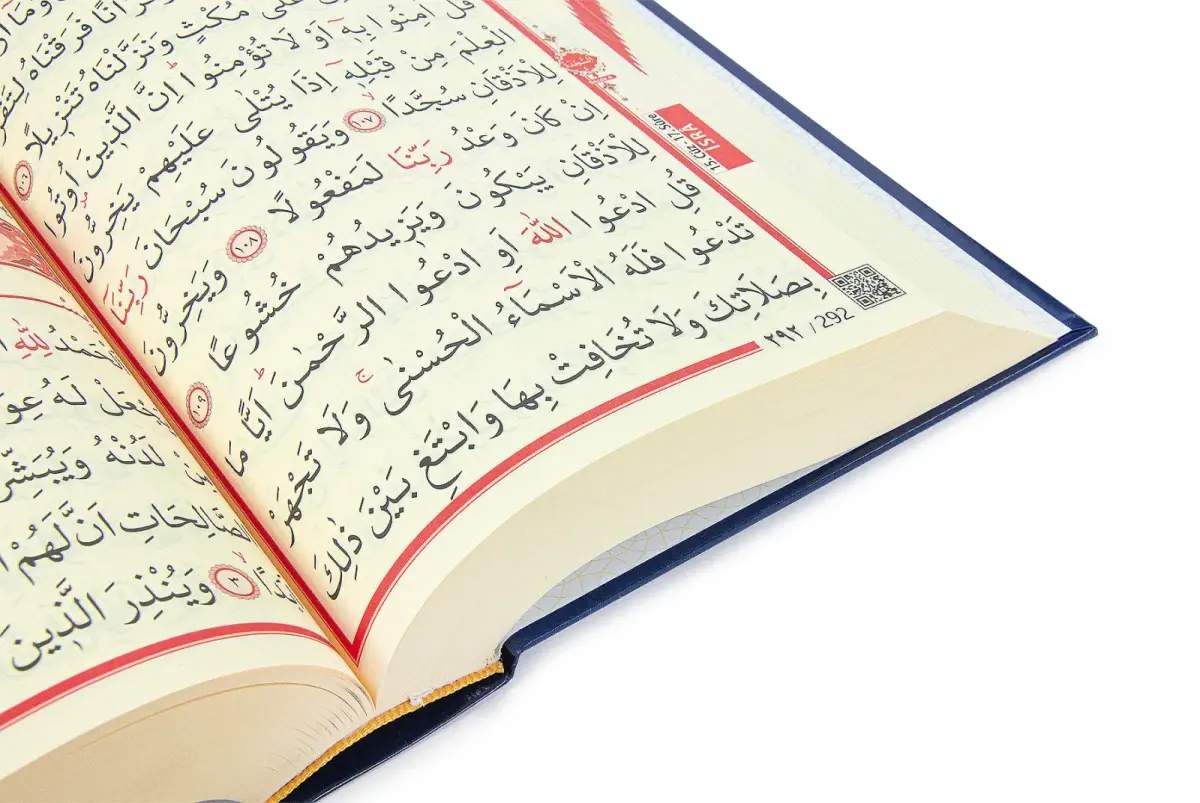 فَرَقْنَاهُ
عَلٰى مُكْثٍ وَنَزَّلْنَاهُ تَنْزِيلًا ﴿١٠٦﴾
قُلْ اٰمِنُوا بِهٖٓ اَوْ لَا تُؤْمِنُواۜ اِنَّ الَّذِينَ اُوتُوا
الْعِلْمَ مِنْ قَبْلِهٖٓ اِذَا يُتْلٰى عَلَيْهِمْ يَخِرُّونَ
لِلْاَذْقَانِ سُجَّدًاۙ ﴿١٠٧﴾ وَيَقُولُونَ سُبْحَانَ رَبِّنَٓا
اِنْ كَانَ وَعْدُ رَبِّنَا لَمَفْعُولًا ﴿١٠٨﴾ وَيَخِرُّونَ
لِلْاَذْقَانِ يَبْكُونَ وَيَزِيدُهُمْ خُشُوعًا ﴿١٠٩﴾
قُلِ ادْعُوا اللّٰهَ اَوِ ادْعُوا الرَّحْمٰنَۜ اَيًّا مَا
تَدْعُوا فَلَهُ الْاَسْمَٓاءُ الْحُسْنٰىۚ وَلَا تَجْهَرْ
بِصَلَاتِكَ وَلَا تُخَافِتْ بِهَا وَابْتَغِ بَيْنَ ذٰلِكَ
٢٩٢ / 292
İSRÂ
15. Cüz - 17. Sûre
لِلّٰهِ
لَهُ
لَدُنْهُ
الصَّالِحَاتِ اَنَّ لَهُمْ
﴿٣﴾ وَيُنْذِرَ الَّذِينَ